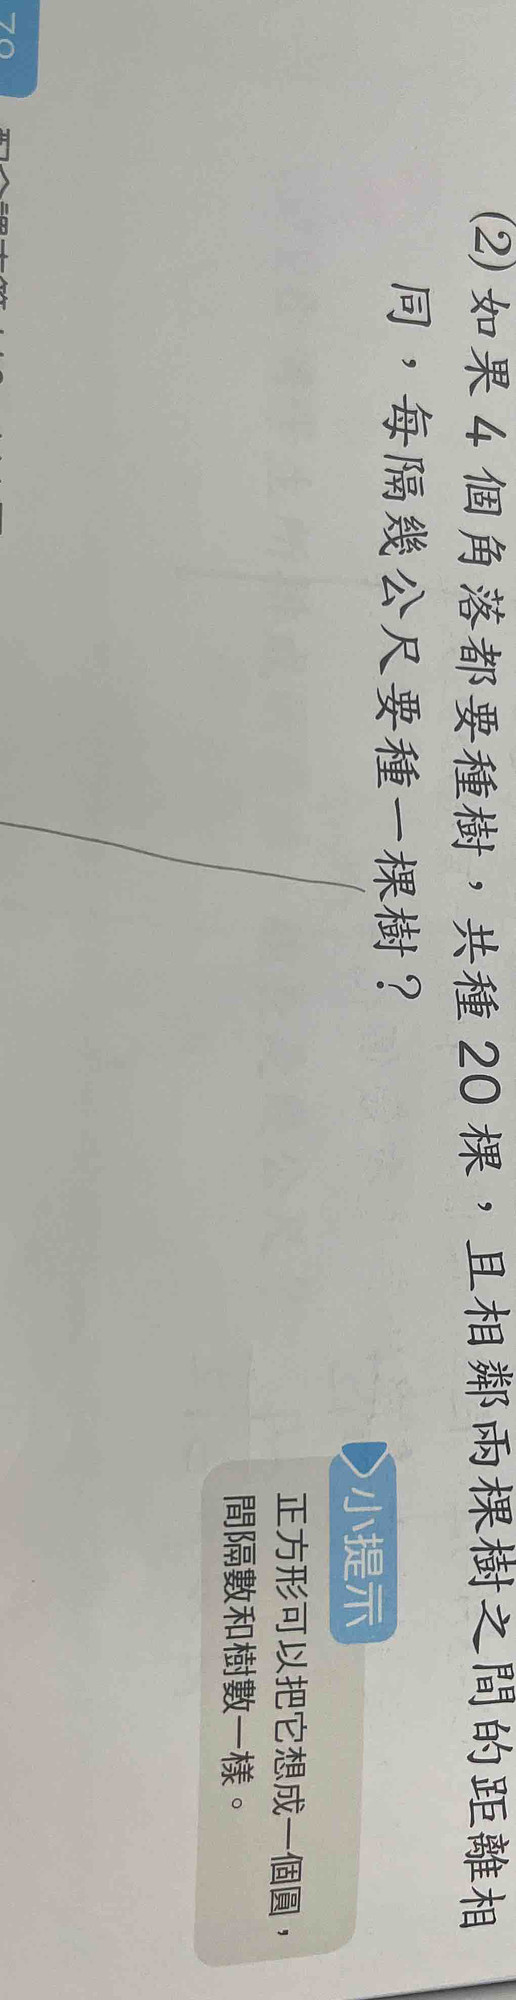 (2)如果4個角落都要種樹，共種20棵，且相鄰兩棵樹之間的距離相
同，每隔幾公尺要種一棵樹？
小提示
正方形可以把它想成一個圓，
間隔數和樹數一樣。